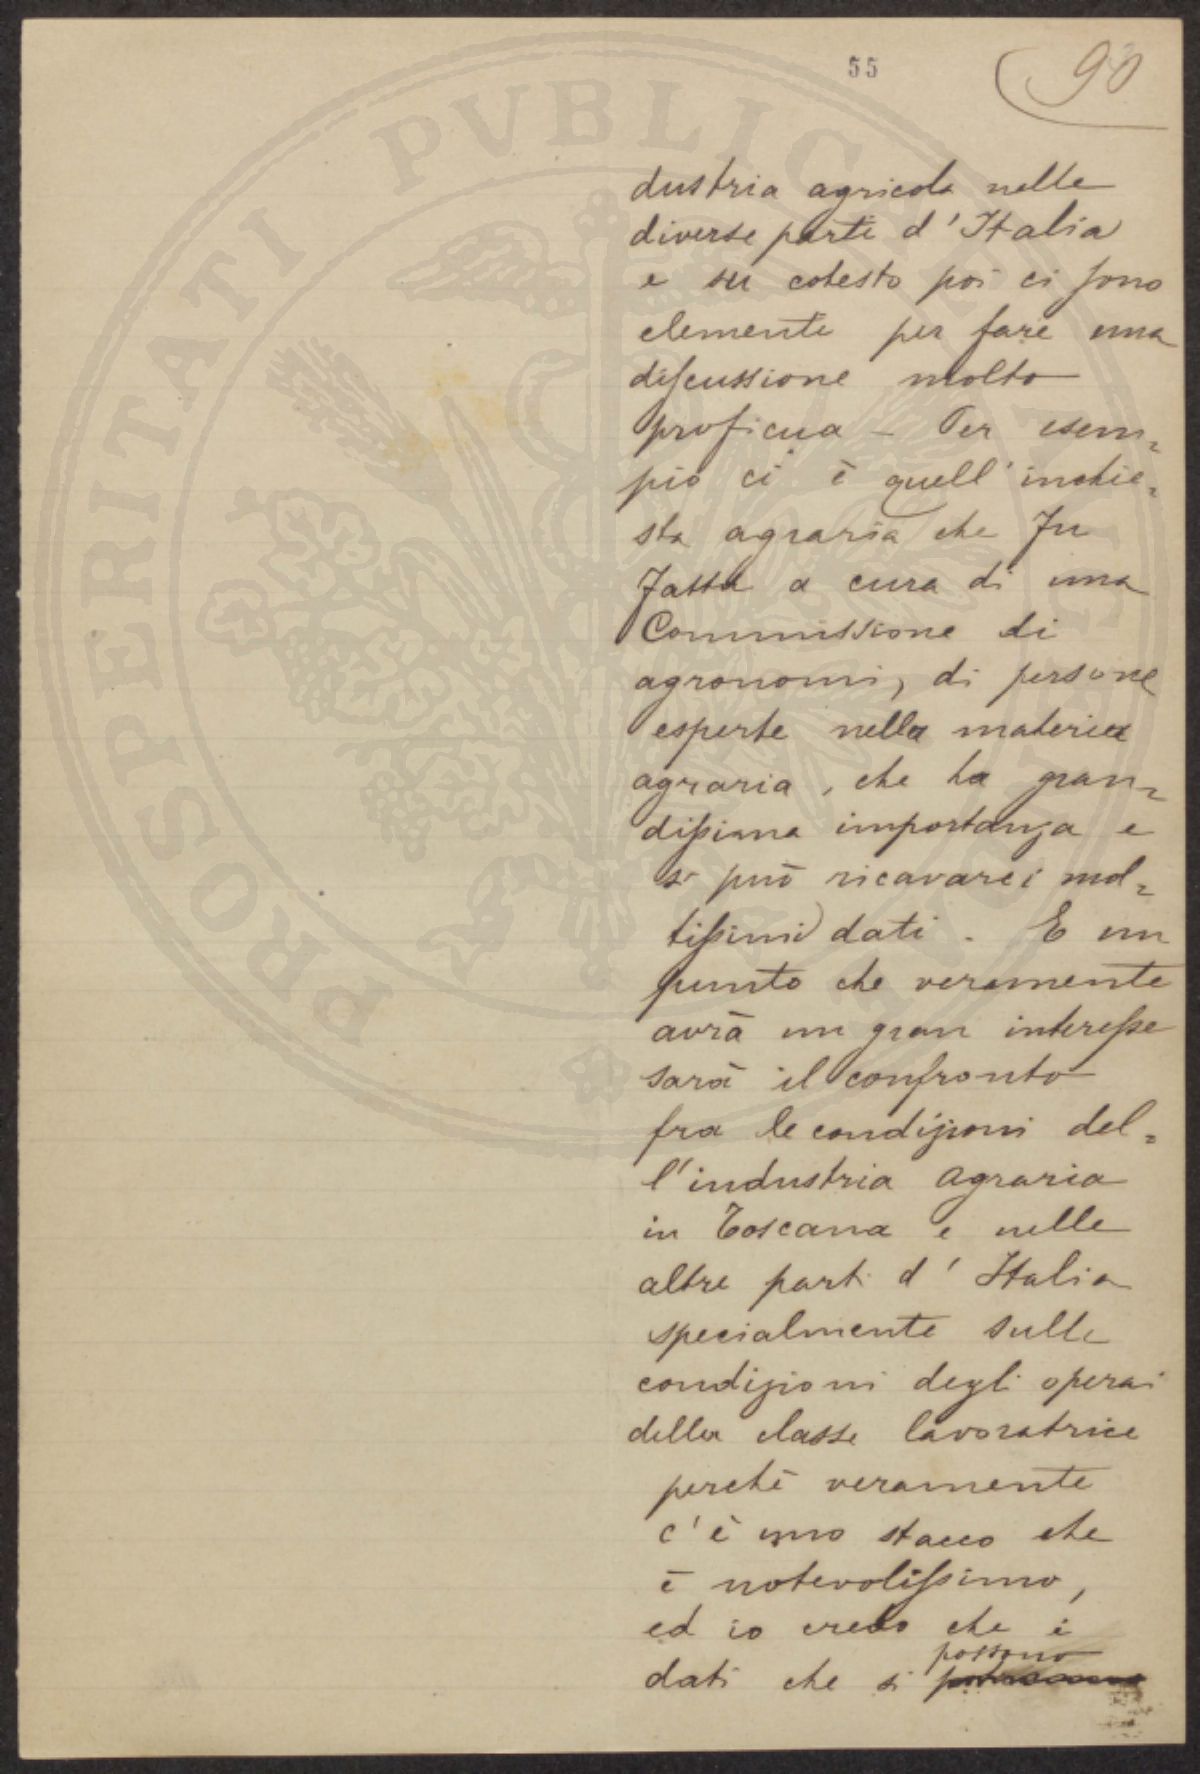 55
90
dustria agricola nelle
diverse parti d'Italia
e su cotesto poi ci sono
elementi per fare una
discussione molto
proficua – Per esem=
pio ci è quell'inchie=
sta agraria che fu
fatta a cura di una
Commissione di
agronomi, di persone
esperte nella materia
agraria, che ha gran=
dissima importanza e
si può ricavarci mol=
tissimi dati. E un
punto che veramente
avrà un gran interesse
sarà il confronto
fra le condizioni del=
l'industria agraria
in Toscana e nelle
altre parti d'Italia
specialmente sulle
condizioni degli operai
della classe lavoratrice
perchè veramente
c'è uno stacco che
è notevolissimo,
ed io credo che i
possono
dati che si
PROSPERITATI PVBLICE